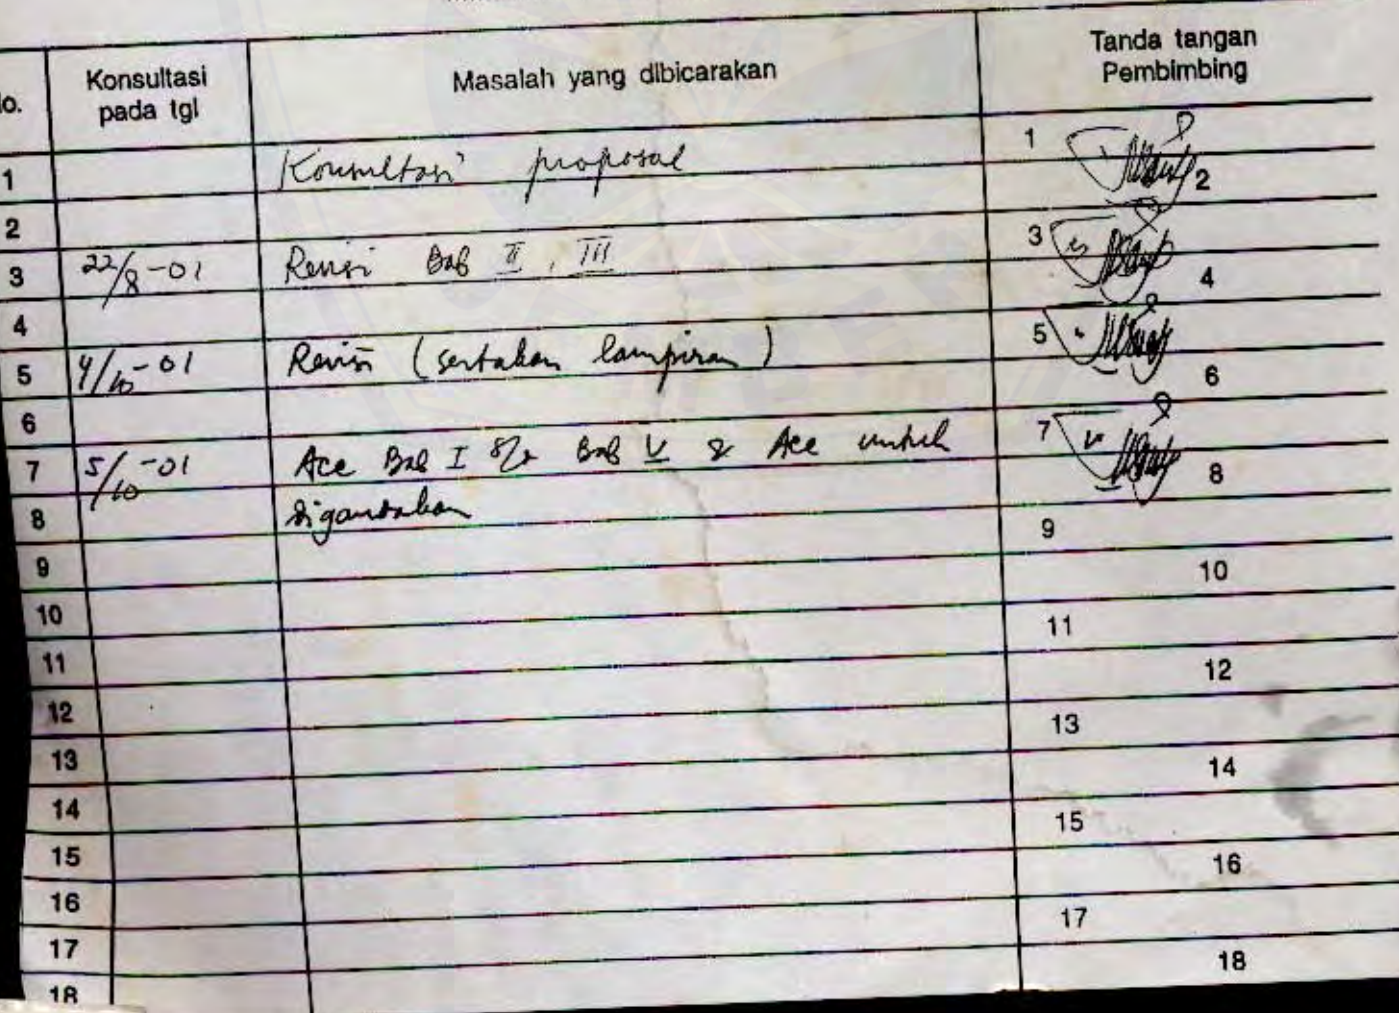 No.
Konsultasi
pada tgl
Masalah yang dibicarakan
Tanda tangan
Pembimbing
1 Konsultasi proposal 1
2 2
3 22/8-01 Revisi Bab II, III 3
4 4
5 4/10-01 Revisi (sertakan lampiran) 5
6 6
7 5/10-01 Acc Bab I s/d Bab V & Acc untuk 7
8 digandakan 8
9 9
10 10
11 11
12 12
13 13
14 14
15 15
16 16
17 17
18 18